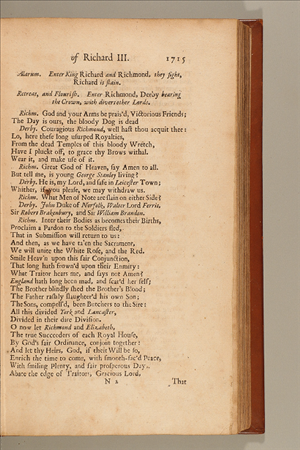 of Richard III. 1715
Alarum. Enter King Richard and Richmond, they fight,
Richard is slain.
Retreat, and Flourish. Enter Richmond, Derby bearing
the Crown, with divers other Lords.
Richm. God and your Arms be prais'd, Victorious Friends;
The Day is ours, the bloody Dog is dead
Derby. Couragious Richmond, well hast thou acquit thee:
Lo, here these long usurped Royalties,
From the dead Temples of this bloody Wretch,
Have I pluckt off, to grace thy Brows withal.
Wear it, and make use of it.
Richm. Great God of Heaven, say Amen to all.
But tell me, is young George Stanley living?
Derby. He is, my Lord, and safe in Leicester Town;
Whither, if you please, we may withdraw us.
Richm. What Men of Note are slain on either Side?
Derby. John Duke of Norfolk, Walter Lord Ferris,
Sir Robert Brakenbury, and Sir William Brandon.
Richm. Inter their Bodies as becomes their Births,
Proclaim a Pardon to the Soldiers fled,
That in Submission will return to us:
And then, as we have ta'en the Sacrament,
We will unite the White Rose, and the Red.
Smile Heav'n upon this fair Conjunction,
That long hath frown'd upon their Enmity:
What Traitor hears me, and says not Amen?
England hath long been mad, and scar'd her self;
The Brother blindly shed the Brother's Blood;
The Father rashly slaughter'd his own Son;
The Sons, compell'd, been Butchers to the Sire:
All this divided York and Lancaster,
Divided in their dire Division.
O now let Richmond and Elizabeth,
The true Succeeders of each Royal House,
By God's fair Ordinance, conjoin together:
And let thy Heirs, God, if their Will be so,
Enrich the time to come, with smooth-fac'd Peace,
With smiling Plenty, and fair prosperous Day.
Abate the edge of Traitors, Gracious Lord.
N 2 That